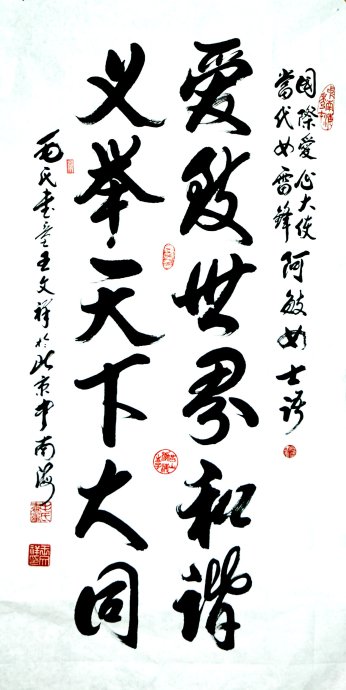 国際爱心大使
當代女雷锋
阿敏女士语
爱致世界和谐
义举天下大同
毛氏书童王文祥於北京中南海